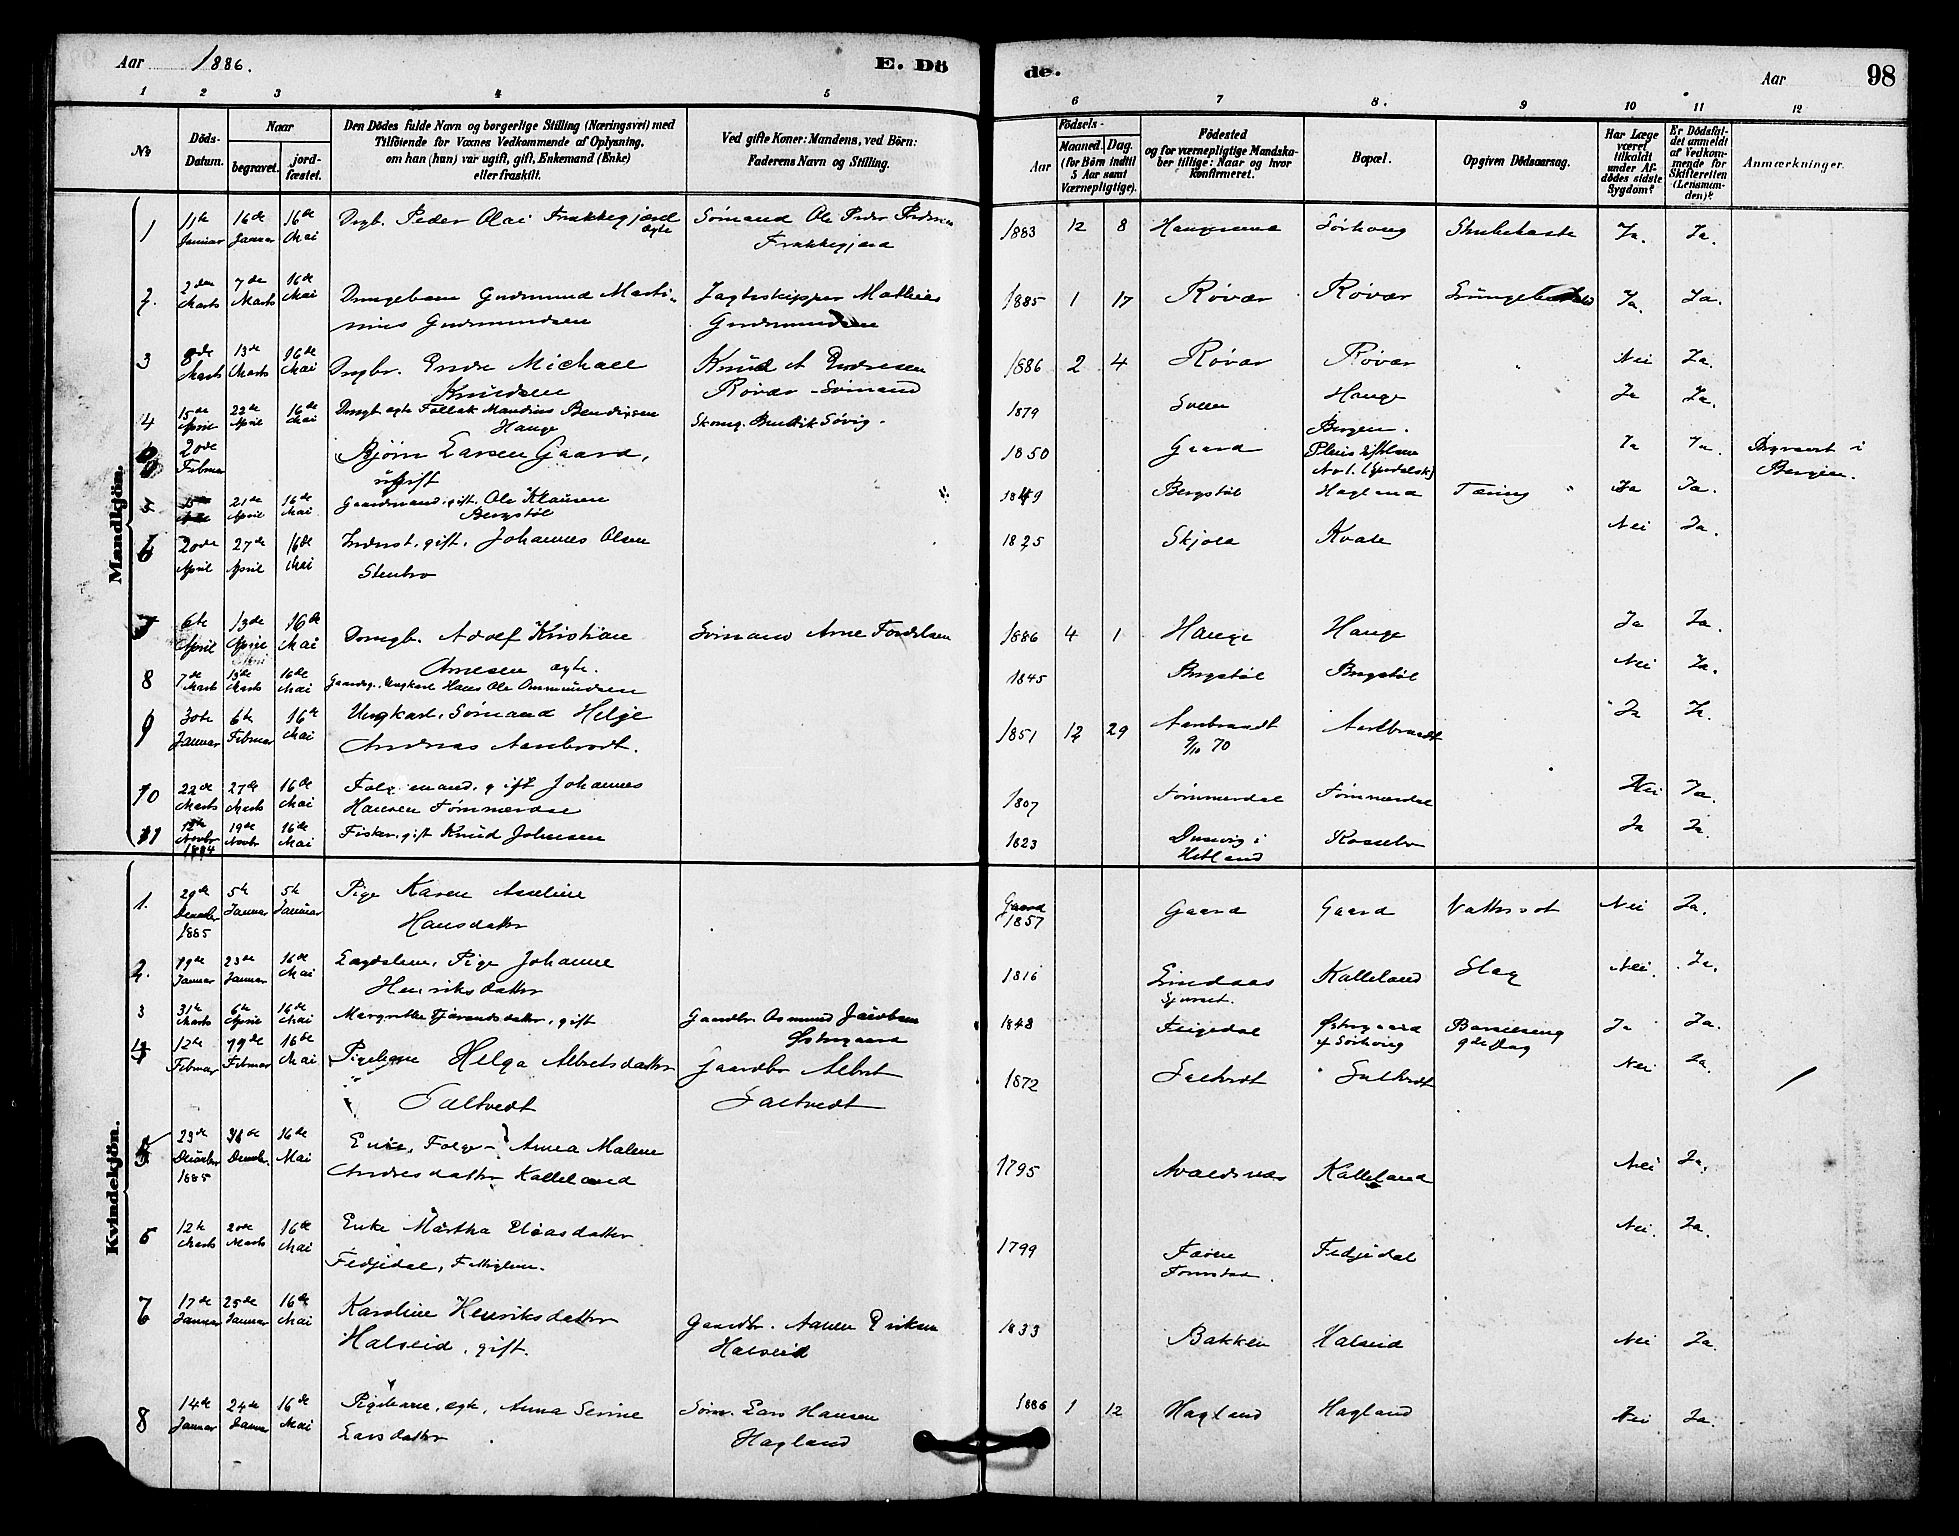 Aar 1886. E. Dö
de. Aar 98
1 2 3 4 5 6 7 8. 9 10 11 12
№
Döds-Datum.
Naar
begravet.
jord-fæstet.
Den Dödes fulde Navn og borgerlige Stilling (Næringsvei) med
Tilföiende for Voxnes Vedkommende af Oplysning,
om han (hun) var ugift, gift, Enkemand (Enke)
eller fraskilt.
Ved gifte Koner: Mandens, ved Börn:
Faderens Navn og Stilling.
Födsels-
Aar
Maaned. Dag.
(for Börn indtil
5 Aar samt
Værnepligtige).
Födested
og for værnepligtige Mandska-
ber tillige: Naar og hvor
Konfirmeret.
Bopæl.
Opgiven Dödsaarsag.
Har Læge
været
tilkaldt
under Af-
dödes sidste
Sygdom?
Er Dödsfal-
det anmeldt
af Vedkom-
mende for
Skifteretten
(Lensman-
den)?
Anmærkninger.
Mandkjön.
1 11te Januar 16de Januar 16de Mai Drgb. Peder Olai Frakkegjerd ægte Sömand Ole Peder Pedersen Frakkegjerd 1883 12 8 Haugesund Sörhoug Ja. Ja.
2. 2den Marts 7de Marts 16de Mai Drengebarn Gudmund Marti-
nius Gudmundsen Jagtskipper Mathias Gudmundsen 1885 1 17 Røvær Røvær Ja. Ja.
3 8de Marts 13de Marts 16de Mai Drgbr. Endre Michael Knudsen Knud A Endresen Røvær Sömand 1886 2 4 Røvær Røvær Nei Ja.
4 15de April 22de April 16de Mai Drngb ægte Falleik Mandius Bendixsen Hauge Skomg. Bendik Søvig. 1879 Sveen Hauge Ja Ja.
20de Februar Bjørn Larsen Gaard, ugift 1850 Gaard Bergen. Ja Ja. Begravet i Bergen.
5 21de April 16de Mai Gaardmand, gift, Ole Klausen Bergstøl 1849 Bergstøl Hagland Tæring Ja Ja.
6 20de April 27de April 16de Mai Inderst, gift, Johannes Olsen
Stenbro 1825 Skjold Kvale Nei Ja.
7 6te April 13de April 16de Mai Drngb. Adolf Kristian
Arnesen ægte. Sömand Arne Tordelsen 1886 4 1 Hauge Hauge Ja Ja.
8 7de Marts 13de Marts 16de Mai Gaardsg. Ungkarl Hans Ole Ommundsen 1845 Bergstøl Bergstøl Nei Ja.
9 30te Januar 6te Februar 16de Mai Ungkarl, Sömand Helge
Andreas Aarebrodt. 1851 12 29 9/10 70 Ja Ja.
10 22de Marts 27de Marts 16de Mai Folgemand, gift Johannes
Hansen Tömmerdal 1807 Tömmerdal Tömmerdal Nei Ja.
11 12te Novbr 1884 19de Novbr 16de Mai Fisker, gift Knud Johnsen 1823 Dusevig i Hetland Ja Ja.
Kvindekjön.
1. 29de Decmber 1885 5te Januar 5te Januar Pige Karen Aseline
Hansdatter 1857 Gaard Gaard Vattersot Nei Ja.
2. 19de Januar 23de Januar 16de Mai Lægdslem, Pige Johanne
Henriksdatter 1816 Lindaas Kalleland Slag Nei. Ja.
3 31te Marts 6te April 16de Mai Margrethe Tjerandsdatter, gift Gaardbr Osmund Jacobsen Østregaard 1848 Feigedal Østregaard af Sørhoug Barselseng 9de Dag Ja Ja.
4 12te Februar 19de Februar 16de Mai Pigebarn Helga Albretsdatter
Saltvedt Gaardbr Albret Saltvedt 1872 Saltvedt Saltvedt Nei Ja.
23de Decmber 1885 31te Decmbr. 16de Mai Enke, Folge- Anna Malene
Andresdatter Kalleland 1795 Avaldsnæs Kalleland Nei Ja.
5 12te Marts 20de Marts 16de Mai Enke Martha Eliasdatter
Fedjedal, Fattiglem. 1799 Fedjedal Nei. Ja.
7 17de Januar 25de Januar 16de Mai Karoline Henriksdatter
Halseid, gift. Gaardbr. Aanen Eriksen Halseid 1833 Bakken Halseid Nei Ja.
8 14de Januar 24de Januar 16de Mai Pigebarn, ægte, Anna Serine
Larsdatter Søm. Lars Hansen Hagland 1886 1 12 Hagland Hagland Nei Ja.